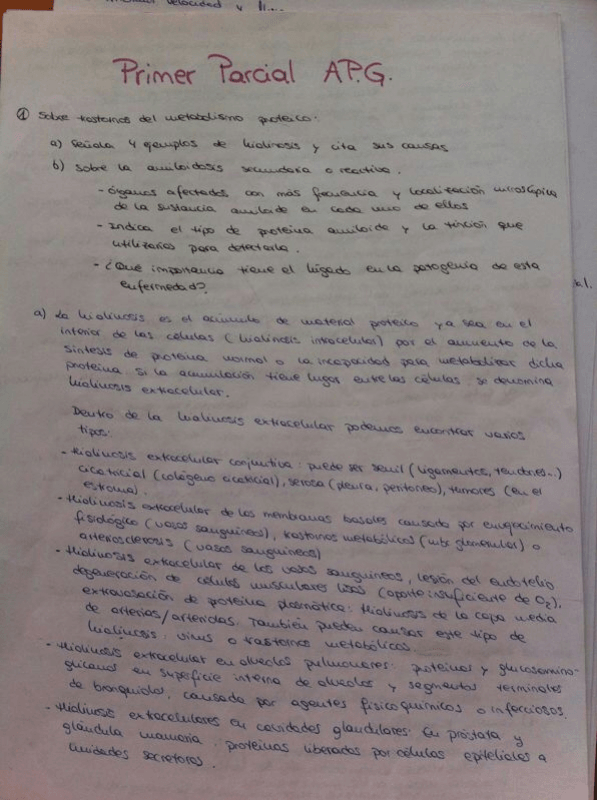 velocidad y
Primer Parcial A.P.G.
① Sobre trastornos del metabolismo proteico:
a) Señala 4 ejemplos de hialinosis y cita sus causas
b) Sobre la amiloidosis secundaria o reactiva.
- Órganos afectados con más frecuencia y localización microscópica
de la sustancia amiloide en cada uno de ellos
- Indica el tipo de proteína amiloide y la tinción que
utilizarías para detectarla.
- ¿Qué importancia tiene el hígado en la patogenia de esta
enfermedad?
a) La hialinosis es el acúmulo de material proteico ya sea en el
interior de las células (hialinosis intracelular) por el aumento de la
síntesis de proteína normal o la incapacidad para metabolizar dicha
proteína. Si la acumulación tiene lugar entre las células se denomina
hialinosis extracelular.
Dentro de la hialinosis extracelular podemos encontrar varios
tipos:
- Hialinosis extracelular conjuntiva: puede ser senil (ligamentos, tendones...)
cicatricial (colágeno cicatricial), serosa (pleura, peritoneo), tumores (en el
estroma).
- Hialinosis extracelular de las membranas basales causada por envejecimiento
fisiológico (vasos sanguíneos), trastornos metabólicos (mb glomerular) o
arteriosclerosis (vasos sanguíneos)
- Hialinosis extracelular de los vasos sanguíneos, lesión del endotelio
degeneración de células musculares lisas (aporte insuficiente de O₂),
extravasación de proteína plasmática: Hialinosis de la capa media
de arterias/arteriolas. También pueden causar este tipo de
hialinosis: virus o trastornos metabólicos.
- Hialinosis extracelular en alveolos pulmonares: proteínas y glucosamino-
glicanos en superficie interna de alveolos y segmentos terminales
de bronquiolos, causada por agentes fisicoquímicos o infecciosos.
- Hialinosis extracelulares en cavidades glandulares: En próstata y
glándula mamaria. proteínas liberadas por células epiteliales a
unidades secretoras.